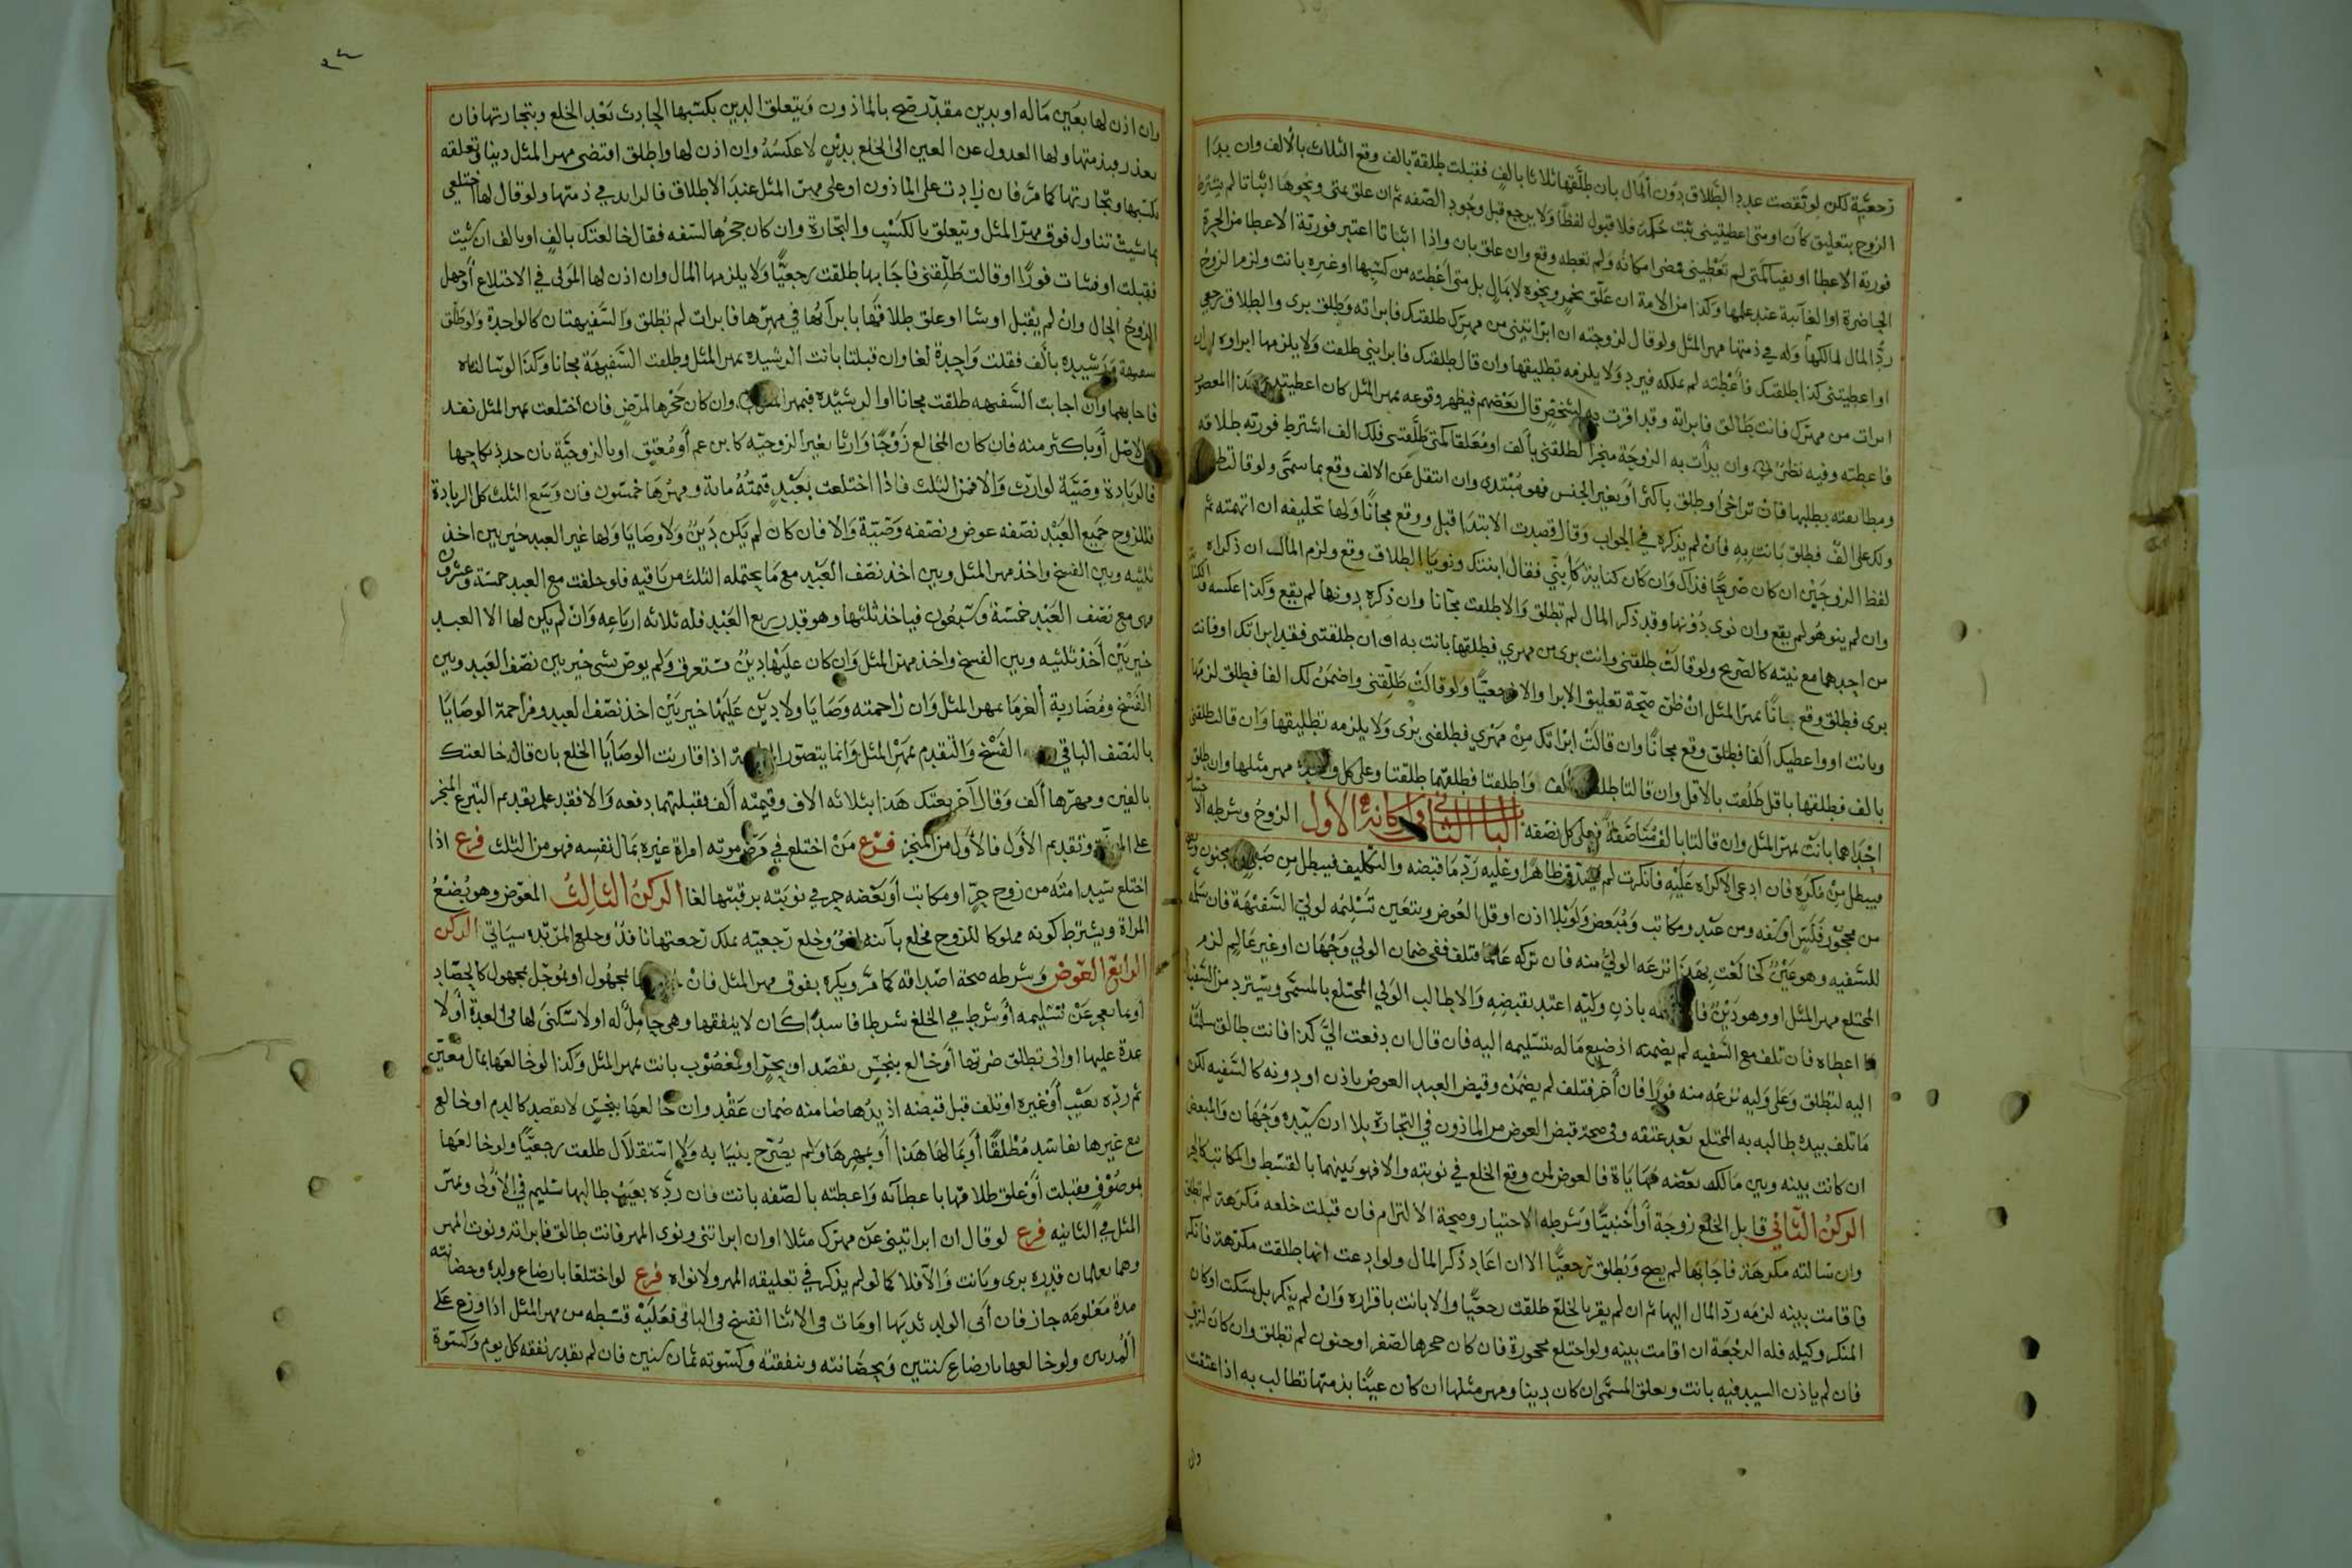 رجعيّة لكن لو نقصت عدد الطلاق دون المال بان طلّقها ثلاثا بالف فقبلت طلقة بالف وقع الثلاث بالألف وان بدا
الزوج بتعليق كان او متى اعطيتيني فلا قبول لفظا ولا يرجع قبل وجود الصفه ثم ان علق بمتى ونحوها اثباتا لم يشترط
فورية الاعطا او نفيا كمتى لم تعطيني فمضى امكانه ولم تعطه وقع وان علق بان واذا اثباتا اعتبر فورية الاعطا من الحرة
الحاضرة او الغائبة عند علمها وكذا من الامة ان علّق بخمر ونحوه لا بمال بل متى اعطته من كسبها او غيره بانت ولزم الزوج
ردّ المال لمالكها وله في ذمتها مهر المثل ولو قال لزوجته ان ابراتيني من مهرك طلقتك فابراته وطلق برى والطلاق رجعي
او اعطيتني كذا طلقتك فاعطته لم يملكه فيرد ولا يلزمه تطليقها وان قال طلقتك فابرايني طلقت ولا يلزمها ابراوه
ابرات من مهرك فانت طالق فابراته وقد اقرت به لشخص قال بعضهم فيظهر وقوعه بمهر المثل كان اعطيتني هذا المغصوب
فاعطته وفيه نظر وان بدأت به الزوجة منجزا لطلقني بألف او معلقا كمتى طلقتني فلك الف اشترط فورته طلاقه
ومطابقته بطلبها فان تراخى او طلق باكثر أو بغير الجنس فهو مبتدي وان انتقل عن الالف وقع بما سمّى ولو قالت
ولك علي الف فطلق بانت به فان لم يذكره في الجواب وقال قصدت الابتدا قبل ووقع مجانا ولها تحليفه ان اتهمته ثم
لفظ الزوجين ان كان صريحا فذاك وان كان كناية كأبنّي فقال ابنتك ونويا الطلاق وقع ولزم المال ان ذكراه
وان لم ينوه لم يقع وان نوى دونها وقد ذكر المال لم تطلق والا طلقت مجانا وان ذكره دونها لم يقع وكذا عكسه
من احدهما مع نيته كالصريح ولو قالت طلقني وانت برى من مهري فطلقها بانت به او ان طلقتني فقد ابراتك او فانت
برى فطلق وقع بائنا بمهر المثل ان ظن صحة تعليق الابرا والا فرجعيّا ولو قالت طلّقني واضمن لك الفا فطلق لزمها
وبانت او واعطيك ألفا فطلق وقع مجانا وان قالت ابراتك من مهري فطلقني برى ولا يلزمه تطليقها وان قالت طلقني
بالف فطلقها باقل طلقت بالاقل وان قالتا طلقنا بالف واطلقتا فطلقهما طلقتا وعلى كل واحدة مهر مثلها وان طلق
احداهما بانت بمهر المثل وان قالتا بالف مناصفة فعلى كل نصفه الباب الثاني في اركانه الأول الزوج وشرطه الاختيار
فيبطل من مكره فان ادعى الاكراه عليه فانكرت لم يصدّق ظاهرا وعليه ردّ ما قبضه والتكليف فيبطل من صبي ومجنون
من محجور فلس او سفه ومن عبد ومكاتب ومبعض ولو بلا اذن او قل العوض ويتعين تسليمه لولي السفيه فان سلّمه
للسفيه وهو عين كخالعت بهذا نزعه الولي منه فان تركه عالما فتلف ففي ضمان الولي وجهان او غير عالم لزم
المختلع مهر المثل او وهو دين باذن وليّه اعتد بقبضه والا طالب الولي المختلع بالمسمى ويسترد من السفيه
ما اعطاه فان تلف مع السفيه لم يضمنه اذ ضيع ماله بتسليمه اليه فان قال ان دفعت اليّ كذا فانت طالق
اليه لتطلق وعلى وليه نزعه منه فورا فان أخر فتلف لم يضمن وقبض العبد العوض باذن او دونه كالسفيه لكن
ما تلف بيده طالبه به المختلع بعد عتقه وفي صحة قبض العوض من الماذون في التجارة بلا اذن سيّده وجهان والمبعض
ان كانت بينه وبين مالك بعضه مهاياة فالعوض لمن وقع الخلع في نوبته والا فهو بينهما بالقسط والمكاتب كالحر
الركن الثاني قابل الخلع زوجة أو أجنبيّا وشرطه الاختيار وصحة الالتزام فان قبلت خلعه مكرهة لم تطلق
وان سالته مكرهة فاجابها لم يصح وتطلق رجعيّا الا ان اعاد ذكر المال ولو ادعت انها طلقت مكرهة فانكر
فاقامت بينه لزمه ردّ المال اليها ثم ان لم يقر بالخلع طلقت رجعيّا والا بانت باقراره وان لم يذكر بل سكت او كان
المنكر وكيله فله الرجعة ان اقامت بينه ولو اختلع محجورة فان كان حجرها لصغر او جنون لم تطلق وان كان لرق
فان لم ياذن السيد فيه بانت ويعلق المسمى ان كان دينا ومهر مثلها ان كان عينا بذمتها تطالب به اذا اعتقت
وان
وان اذن لها بعين ماله او بدين مقدّر صح بالماذون ويتعلق الدين بكسبها الحادث بعد الخلع وبتجارتها فان
تعذر وبذمتها ولها العدول عن العين الى الخلع بدين لا عكسه وان اذن لها واطلق اقتضى مهر المثل دينا وتعلقه
بكسبها وتجارتها كما مرّ فان زادت على الماذون او على مهر المثل عند الاطلاق فالزايد في ذمتها ولو قال لها اختلعي
بما شيت تناول فوق مهر المثل ويتعلق بالكسب والتجارة وان كان حجرها لسفه فقال خالعتك بالف او بالف ان شيت
فقبلت او فشات فورا او قالت طلّقني فاجابها طلقت رجعيّا ولا يلزمها المال وان اذن لها الولي في الاختلاع أو جهل
الزوج الحال وان لم يقبل او يشا او علق طلاقها بابرائها في مهرها فابرات لم تطلق والسفيهتان كالواحدة ولو طلق
سفيهة ورشيده بألف فقبلت واحدة لغا وان قبلتا بانت الرشيده بمهر المثل وطلقت السفيهة مجانا وكذا لو سالتاه
فاجابهما وان اجابت السفيهه طلقت مجانا او الرشيده فبمهر المثل وان كان حجرها لمرض فان اختلعت بمهر المثل نفذ
من الاصل أو باكثر منه فان كان المخالع زوجا وارثا بغير الزوجيّه كابن عم أو معتق او بالزوجيّة بان جدد نكاحها
فالزيادة وصيّة لوارث والا فمن الثلث فاذا اختلعت بعبد قيمته مائة ومهرها خمسون فان وسع الثلث كل الزيادة
فللزوج جميع العبد نصفه عوض ونصفه وصيّة والا فان كان لم يكن دين ولا وصايا ولها غير العبد خير بين اخذ
ثلثيه وبين الفسخ واخذ مهر المثل وبين اخذ نصف العبد مع ما يحتمله الثلث من باقيه فلو خلفت مع العبد خمسة وعشرون
فهي مع نصف العبد خمسة وسبعون فياخذ ثلثها وهو قدر ربع العبد فله ثلاثة ارباعه وان لم يكن لها الا العبد
خير بين أخذ ثلثيه وبين الفسخ واخذ مهر المثل وان كان عليها دين مستغرق ولم يوص بشي خير بين نصف العبد وبين
الفسخ ومضاربة الغرما بمهر المثل وان زاحمته وصايا ولا دين عليها خير بين اخذ نصف العبد ومزاحمة الوصايا
بالنصف الباقي الفسخ والتقدم بمهر المثل وانما يتصور اذا قارنت الوصايا الخلع بان قال خالعتك
بالفين ومهرها ألف وقال آخر بعتك هذا بثلاثة الاف وقيمته ألف وقبلتهما دفعه والا فقد علم تقديم التبرع المنجز
على وتقديم الأول فالأول من المنجز فرع من اختلع في مرض موته امراة غيره بمال نفسه فهو من الثلث فرع اذا
اختلع سيد امته من زوج حر او مكاتب أو بعضه حر في نوبته برقبتها لغا الركن الثالث المعوض وهو بضع
المراة ويشترط كونه مملوكا للزوج فخلع بائنه لغو وخلع رجعيته يملك رجعتها نافذ وخلع المرتده سياتي الركن
الرابع العوض وشرطه صحة اصداقه كما مرّ ويكره بفوق مهر المثل فان بمجهول او بمؤجل بمجهول كالحصاد
أو بما يعجز عن تسليمه أو شرط في الخلع شرطا فاسدا كان لا ينفقها وهي حامل له او لا سكنى لها في العدة أو لا
عدة عليها او ان تطلق ضرتها أو خالع بنجس يقصد او بحر او بمغصوب بانت بمهر المثل وكذا لو خالعها بمال معيّن
ثم ردّه بعيب أو غيره او تلف قبل قبضه اذ يدها ضامنه ضمان عقد وان خالعها بنجس لا يقصد كالدم او خالع
مع غيرها بفاسد مطلقا أو بمالها هذا أو بمهرها ولم يصرح بنيابه ولا استقلال طلقت رجعيّا ولو خالعها
بموصوف فقبلت أو علق طلاقها باعطائه واعطته بالصفه بانت فان ردّه بعيب طالبها بسليم في الأولى وبمهر
المثل في الثانيه فرع لو قال ان ابراتيني عن مهرك مثلا او ان ابراتني ونوى المهر فانت طالق فابراته ونوت المهر
وهما يعلمان قدره برى وبانت والا فلا كما لو لم يذكر في تعليقه المهر ولا نواه فرع لو اختلعا بارضاع ولده وحضانته
مدة معلومه جاز فان أبى الولد ثديها او مات في الاثنا انفسخ في الباقي فعليه قسطه من مهر المثل اذا وزع على
المدتين ولو خالعها بارضاع سنتين وبحضانته وبنفقته وكسوته ثمان سنين فان لم يقدر نفقه كل يوم وكسوة